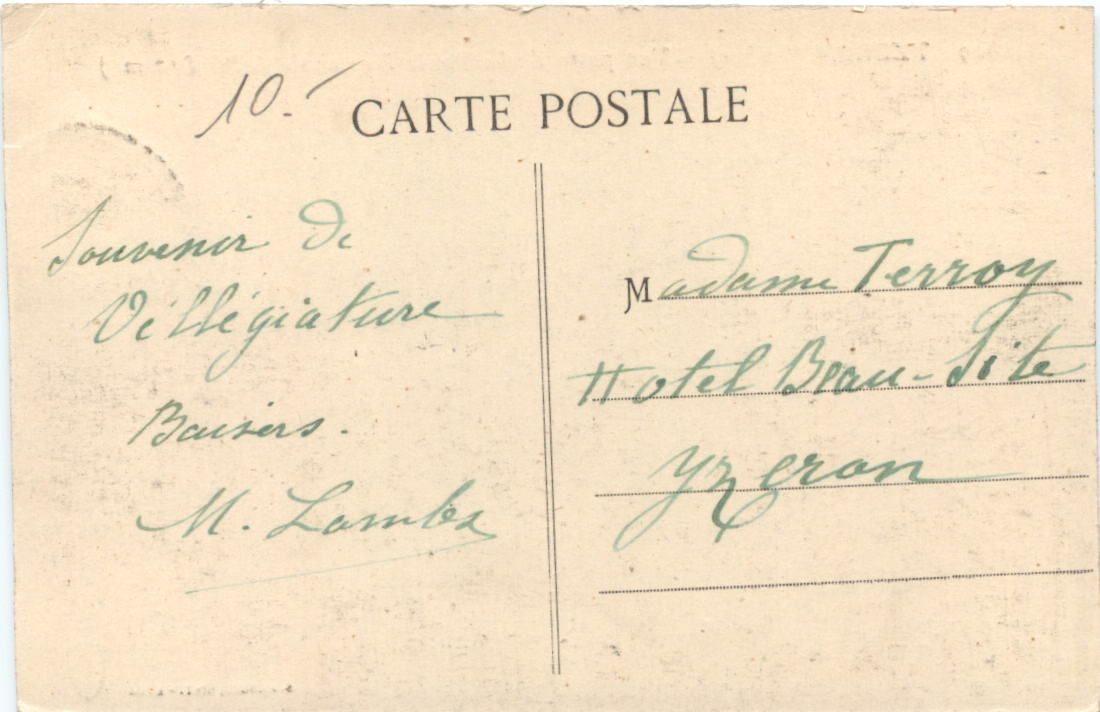 10.-
CARTE POSTALE
Souvenir de
Villégiature
Baisers.
M.
Madame Terroy
Hotel Beau-Site
Yzeron